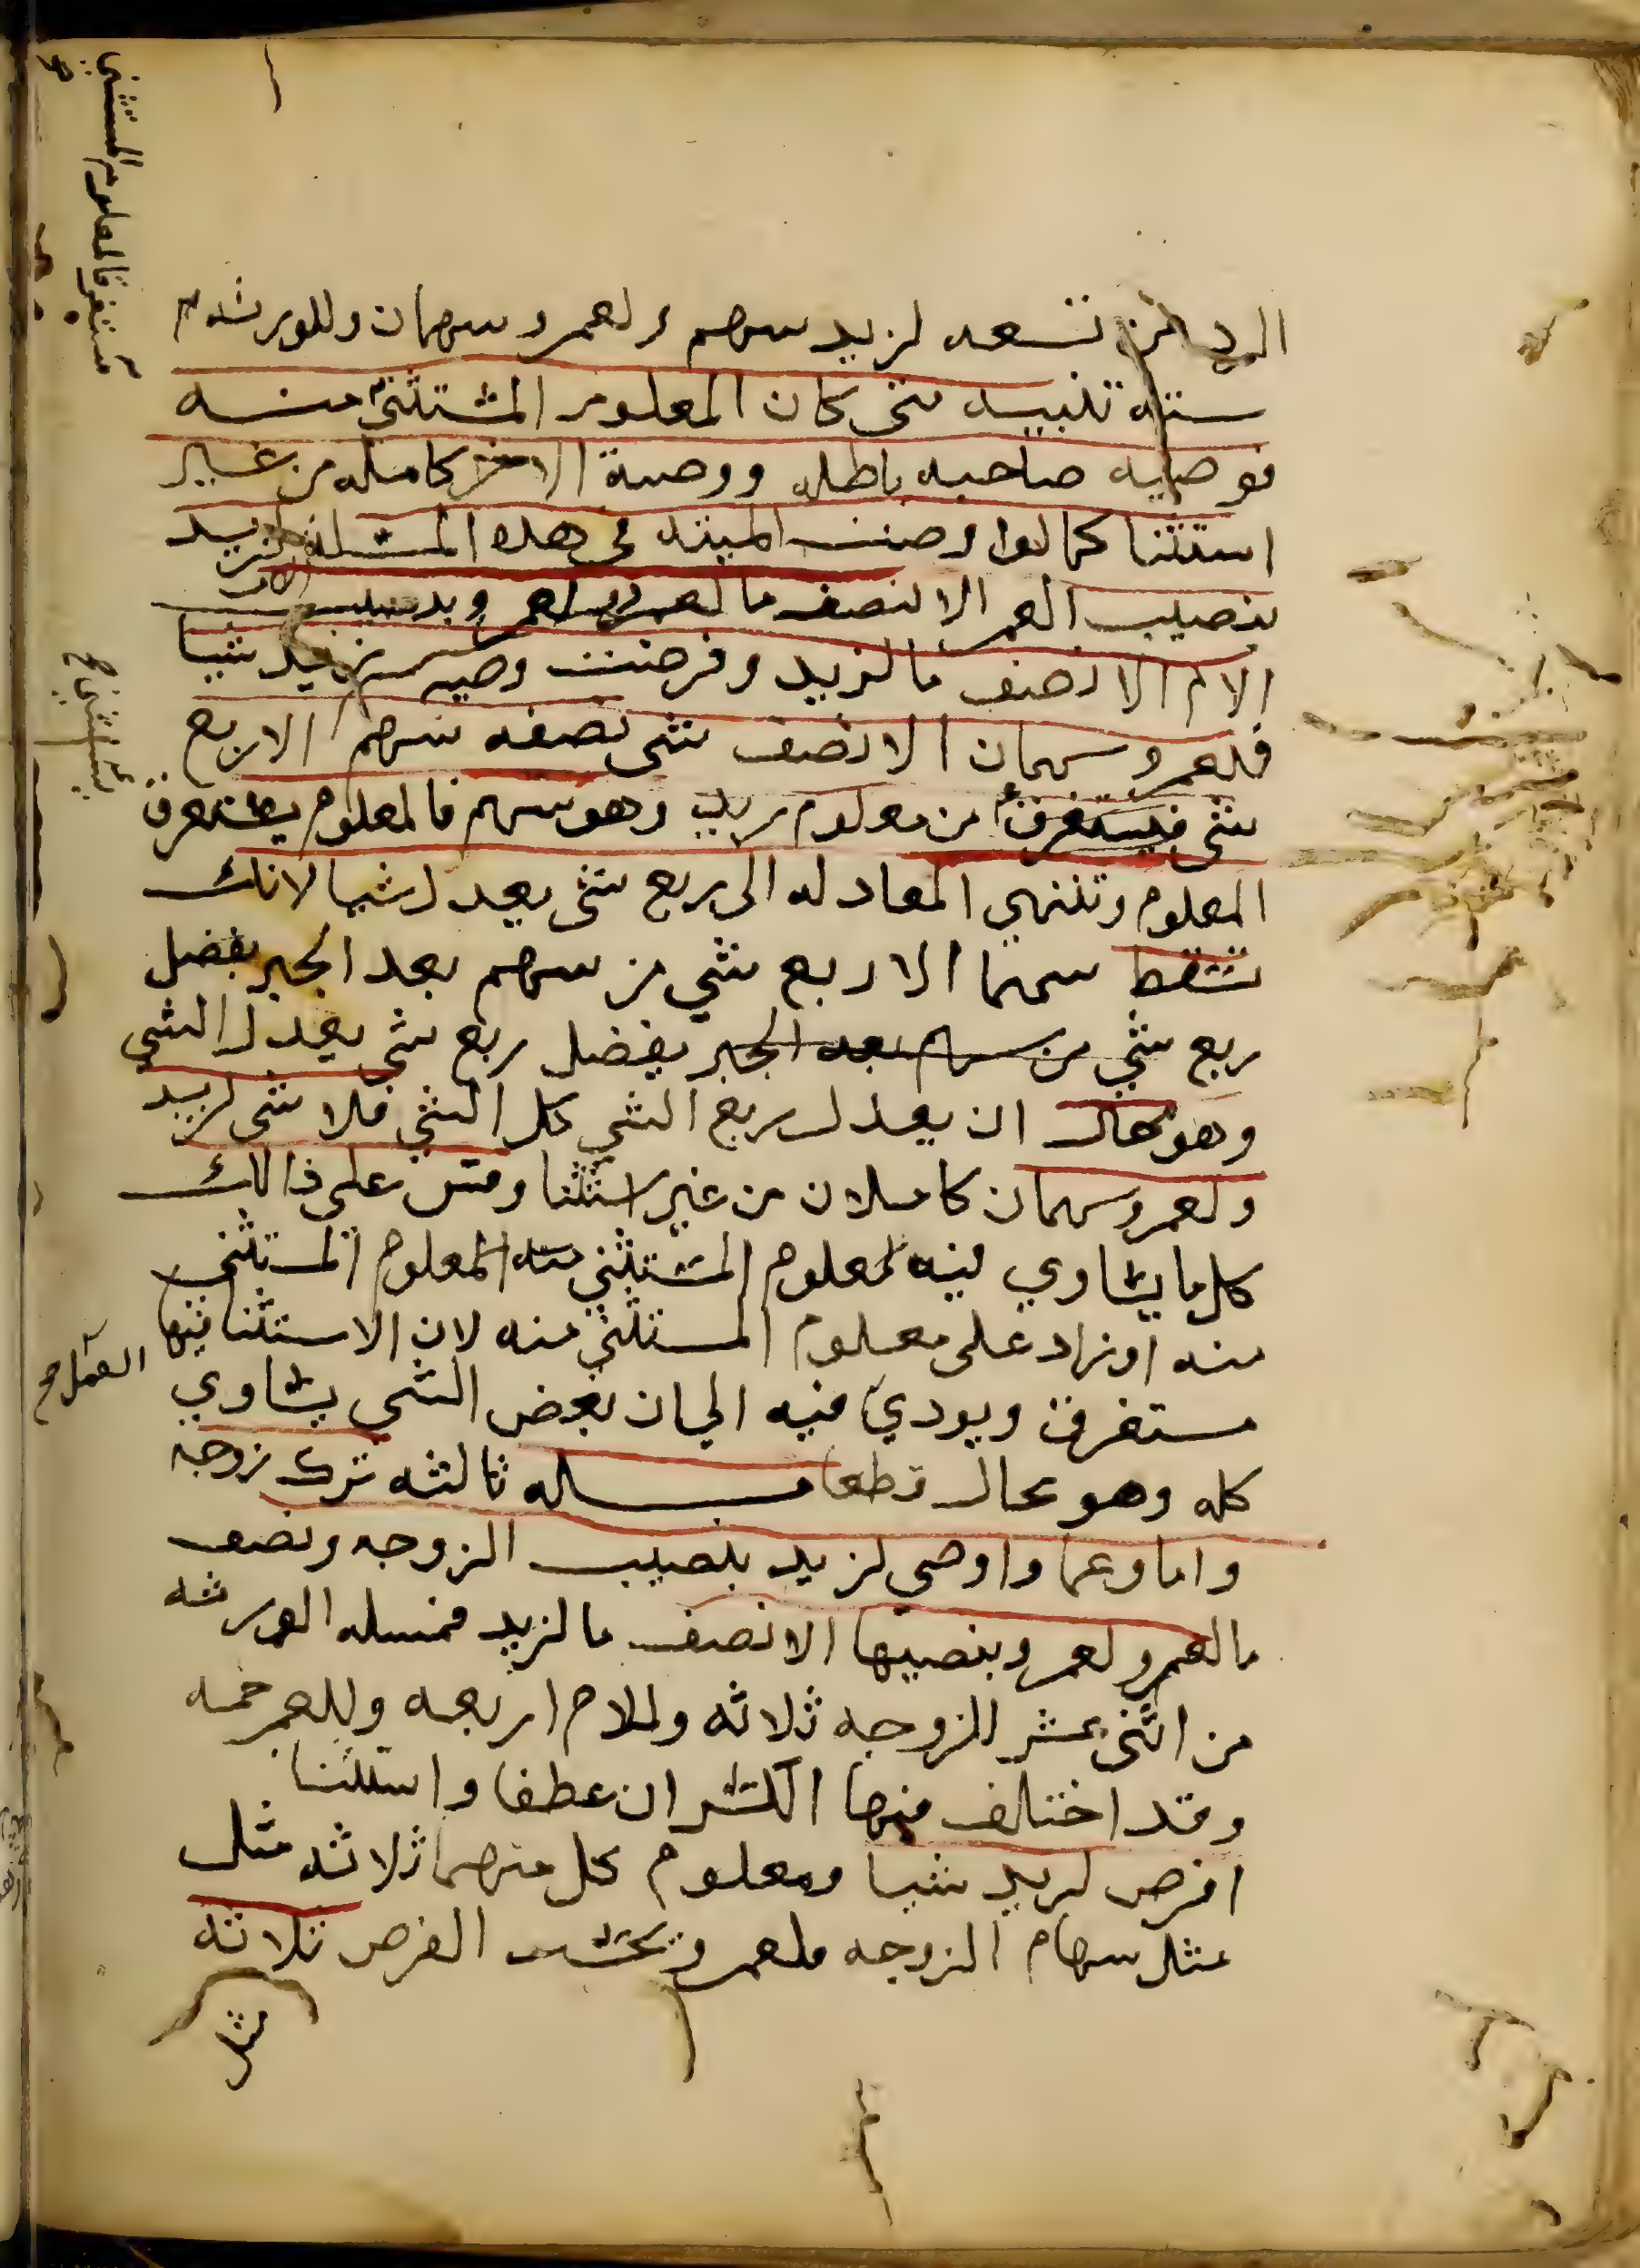 الرد من تسعه لزيد سهم ولعمرو سهمان وللورثه
سته تنبيه متى كان المعلوم المستثنى منه
فوصيه صاحبه باطله ووصية الاخر كامله من غير
استثنا كما لو اوصت الميته في هذه المسله لزيد
بنصيب العم الا نصف ما لعمرو ولعمرو بنصيب
الام الا نصف ما لزيد وفرضت وصيه زيد شيا
فلعمرو سهمان الا نصف شي نصفه سهم الا ربع
شي فيستغرق من معلوم زيد وهو سهم فالمعلوم يستغرق
المعلوم وتنتهي المعادله الى ربع شي يعدل شيا لانك
تسقط سهما الا ربع شي من سهم بعد الجبر يفضل
ربع شي من سهم بعد الجبر يفضل ربع شي يعدل الشي
وهو محال ان يعدل ربع الشي كل الشي فلا شي لزيد
ولعمرو سهمان كاملان من غير استثنا وقس على ذالك
كل ما يساوي فيه المعلوم المستثنى منه المعلوم المستثنى
منه او زاد على معلوم المستثنى منه لان الاستثنا فيها
مستغرق ويودي فيه الى ان بعض الشي يساوي
كله وهو محال قطعا مسله ثالثه ترك زوجه
واما وعما واوصى لزيد بنصيب الزوجه ونصف
ما لعمرو ولعمرو بنصيبها الا نصف ما لزيد فمسله الورثه
من اثنى عشر للزوجه ثلاثه وللام اربعه وللعم خمسه
وقد اختلف فيها الكسران عطفا واستثنا
افرض لزيد شيا ومعلوم كل منهما ثلاثه مثل
مثل سهام الزوجه فلعمرو بحسب الفرض ثلاثه
مثل
مستغرق المعلوم المستثنى
يستثنى ح
العمل صح